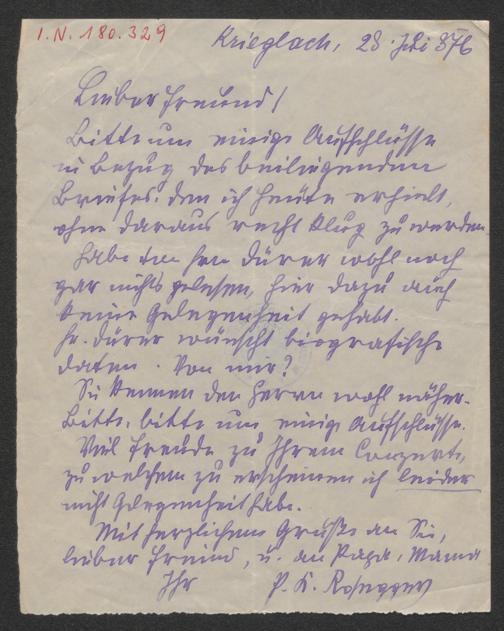 I.N. 180.329
Krieglach, 28. Juli 876
Lieber Freund!
Bitte um einige Aufschlüsse
in Bezug des beiliegenden
Briefes, den ich heute erhielt,
ohne daraus recht klug zu werden.
Habe von Hrn Dürer wohl noch
gar nichts gelesen, hier dazu auch
keine Gelegenheit gehabt.
Hr. Dürer wünscht biografische
Daten. Von mir?
Sie kennen den Herrn wohl näher.
Bitte, bitte um einige Aufschlüsse.
Viel Freude zu Ihrem Conzerte,
zu welchem zu erscheinen ich leider
nicht Gelegenheit habe.
Mit herzlichem Gruße an Sie,
lieber Freund, u. an Papa, Mama
Ihr P. K. Rosegger